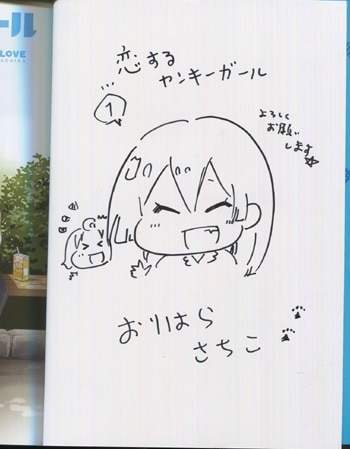 ール
LOVE
恋する
ヤンキーガール
…
1
よろしく
お願い
します☆
おりはら
さちこ